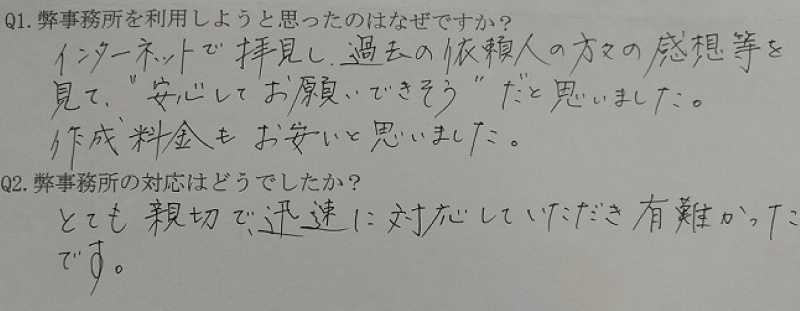 Q1. 弊事務所を利用しようと思ったのはなぜですか？
インターネットで拝見し、過去の依頼人の方々の感想等を
見て、"安心してお願いできそう"だと思いました。
作成料金もお安いと思いました。
Q2. 弊事務所の対応はどうでしたか？
とても親切で、迅速に対応していただき有難かった
です。